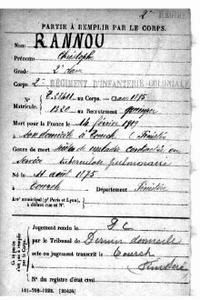 PARTIE À REMPLIR PAR LE CORPS.
Nom RANNOU
Prénoms Christophe
Grade 2e
Corps 2e RÉGIMENT D'INFANTERIE COLONIALE
N° au Corps. — Cl. 1895
Matricule. 1320 au Recrutement Quimper
Mort pour la France le 14 février 1919
à son domicile à Tourch (Finistère)
Genre de mort suite de maladie contractée en
service tuberculose pulmonaire
Né le 11 août 1875
à Tourch Département Finistère
Arr<sup>t</sup> municipal (p<sup>r</sup> Paris et Lyon),
à défaut rue et N°.
Jugement rendu le
par le Tribunal de Dernier domicile
acte ou jugement transcrit le Tourch
Finistère
N° du registre d'état civil